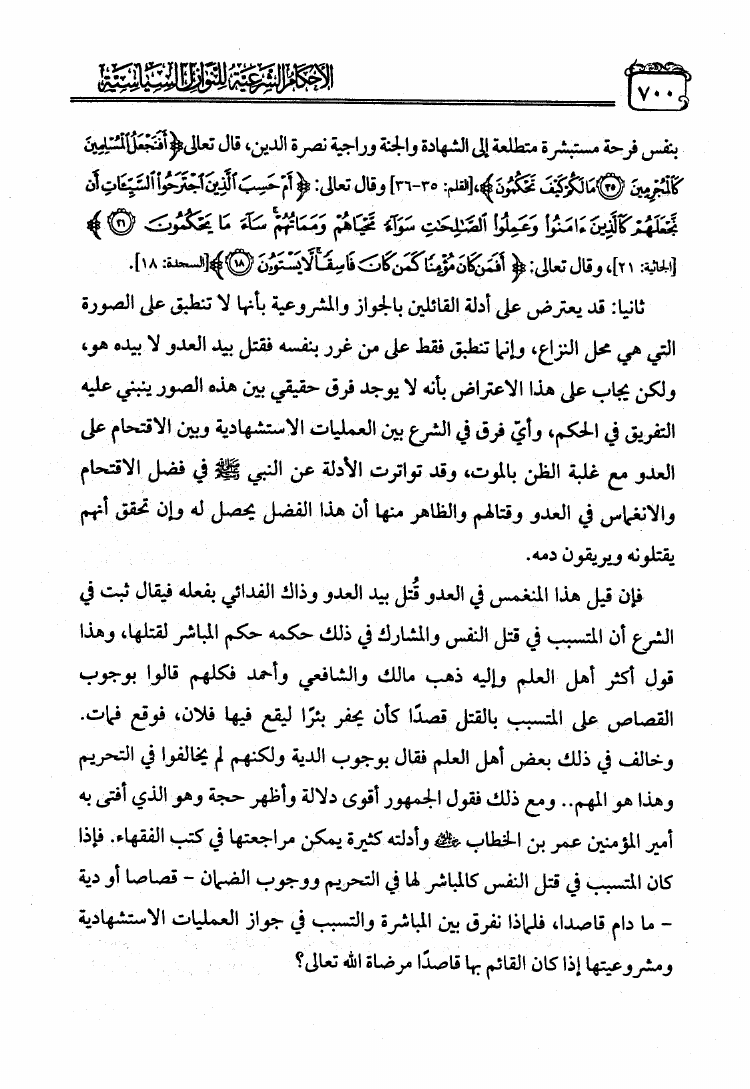 الأحكام الشرعية للنوازل السياسية
٧٠٠
بنفس فرحة مستبشرة متطلعة إلى الشهادة والجنة وراجية نصرة الدين، قال تعالى ﴿أَفَنَجْعَلُ ٱلْمُسْلِمِينَ
كَٱلْمُجْرِمِينَ ﴿٣٥﴾ مَا لَكُمْ كَيْفَ تَحْكُمُونَ﴾، [القلم: ٣٥-٣٦] وقال تعالى: ﴿أَمْ حَسِبَ ٱلَّذِينَ ٱجْتَرَحُوا۟ ٱلسَّيِّـَٔاتِ أَن
نَّجْعَلَهُمْ كَٱلَّذِينَ ءَامَنُوا۟ وَعَمِلُوا۟ ٱلصَّـٰلِحَـٰتِ سَوَآءً مَّحْيَاهُمْ وَمَمَاتُهُمْ ۚ سَآءَ مَا يَحْكُمُونَ ﴿٢١﴾﴾
[الجاثية: ٢١]، وقال تعالى: ﴿أَفَمَن كَانَ مُؤْمِنًا كَمَن كَانَ فَاسِقًا ۚ لَّا يَسْتَوُۥنَ ﴿١٨﴾﴾ [السجدة: ١٨].
ثانيا: قد يعترض على أدلة القائلين بالجواز والمشروعية بأنها لا تنطبق على الصورة
التي هي محل النزاع، وإنما تنطبق فقط على من غرر بنفسه فقتل بيد العدو لا بيده هو،
ولكن يجاب على هذا الاعتراض بأنه لا يوجد فرق حقيقي بين هذه الصور ينبني عليه
التفريق في الحكم، وأيّ فرق في الشرع بين العمليات الاستشهادية وبين الاقتحام على
العدو مع غلبة الظن بالموت، وقد تواترت الأدلة عن النبي ﷺ في فضل الاقتحام
والانغماس في العدو وقتالهم والظاهر منها أن هذا الفضل يحصل له وإن تحقق أنهم
يقتلونه ويريقون دمه.
فإن قيل هذا المنغمس في العدو قُتل بيد العدو وذاك الفدائي بفعله فيقال ثبت في
الشرع أن المتسبب في قتل النفس والمشارك في ذلك حكمه حكم المباشر لقتلها، وهذا
قول أكثر أهل العلم وإليه ذهب مالك والشافعي وأحمد فكلهم قالوا بوجوب
القصاص على المتسبب بالقتل قصدًا كأن يحفر بئرًا ليقع فيها فلان، فوقع فمات.
وخالف في ذلك بعض أهل العلم فقال بوجوب الدية ولكنهم لم يخالفوا في التحريم
وهذا هو المهم.. ومع ذلك فقول الجمهور أقوى دلالة وأظهر حجة وهو الذي أفتى به
أمير المؤمنين عمر بن الخطاب رضي الله عنه وأدلته كثيرة يمكن مراجعتها في كتب الفقهاء. فإذا
كان المتسبب في قتل النفس كالمباشر لها في التحريم ووجوب الضمان – قصاصا أو دية
– ما دام قاصدا، فلماذا نفرق بين المباشرة والتسبب في جواز العمليات الاستشهادية
ومشروعيتها إذا كان القائم بها قاصدًا مرضاة الله تعالى؟